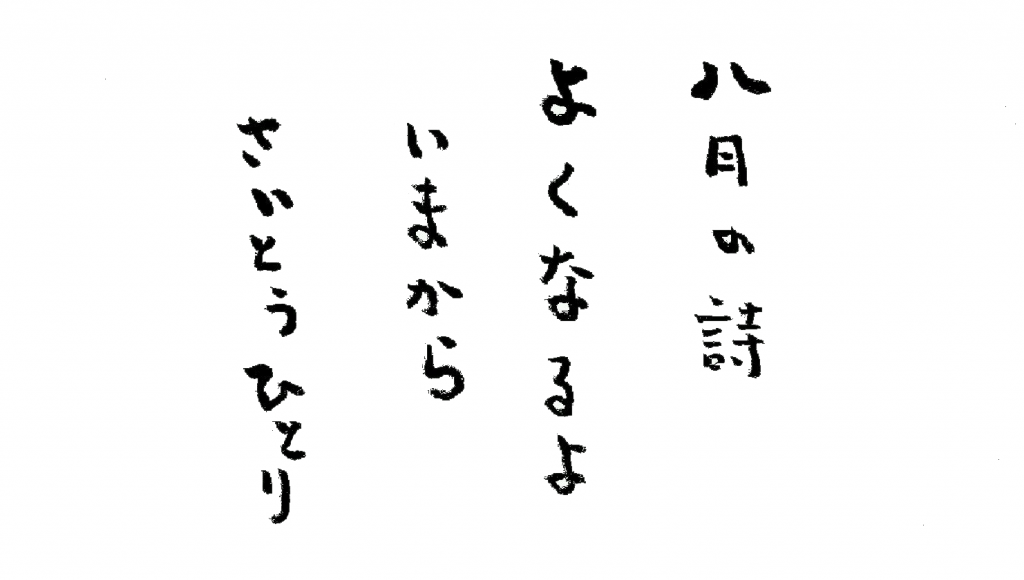 八月の詩
よくなるよ
いまから
さいとうひとり